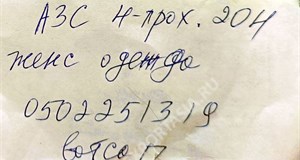 АЗС 4-прох. 204
женс одежда
0502251319
вотсап